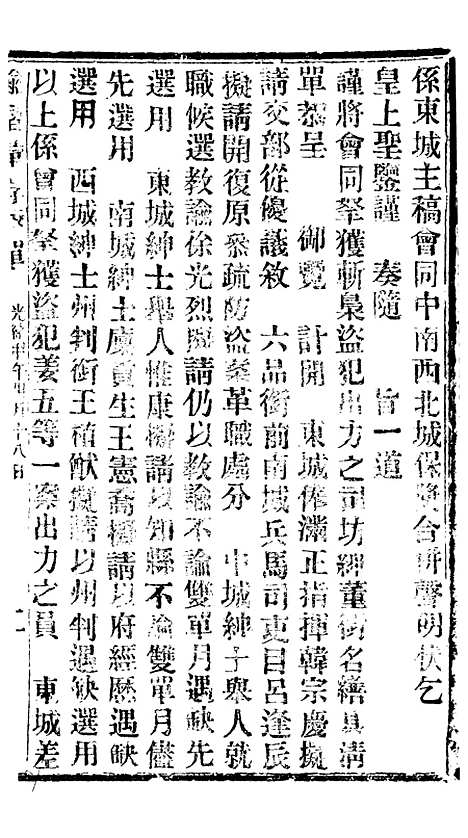 係東城主稿會同中南西北城保獎合併聲明伏乞
皇上聖鑒謹　奏隨　旨一道
謹將會同拏獲斬梟盜犯出力之司坊紳董銜名繕具清
單恭呈　御覽　計開　東城俸滿正指揮韓宗慶擬
請交部從優議敘　六品銜前南城兵馬司吏目呂逢辰
擬請開復原參疏防盜案革職處分　中城紳士舉人就
職候選教諭徐光烈擬請仍以教諭不論雙單月遇缺先
選用　東城紳士舉人惟康擬請以知縣不論雙單月儘
先選用　南城紳士廩貢生王憲喬擬請以府經歷遇缺
選用　西城紳士州判銜王猷擬請以州判遇缺選用
以上係會同拏獲盜犯姜五等一案出力之員　東城差
光緒甲午月十八日